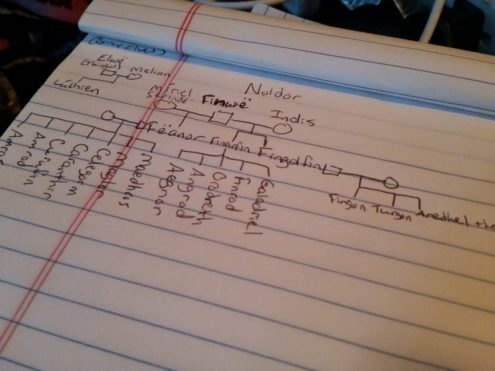 (Grey Elves)
Elwë
Thingol Melian
Lúthien
Noldor
Míriel
Serindë Finwë Indis
Fëanor Finarfin Fingolfin
Maedhros
Maglor
Celegorm
Caranthir
Curufin
Amrod
Amras
Galadriel
Finrod
Orodreth
Angrod
Aegnor
Fingon Turgon Aredhel